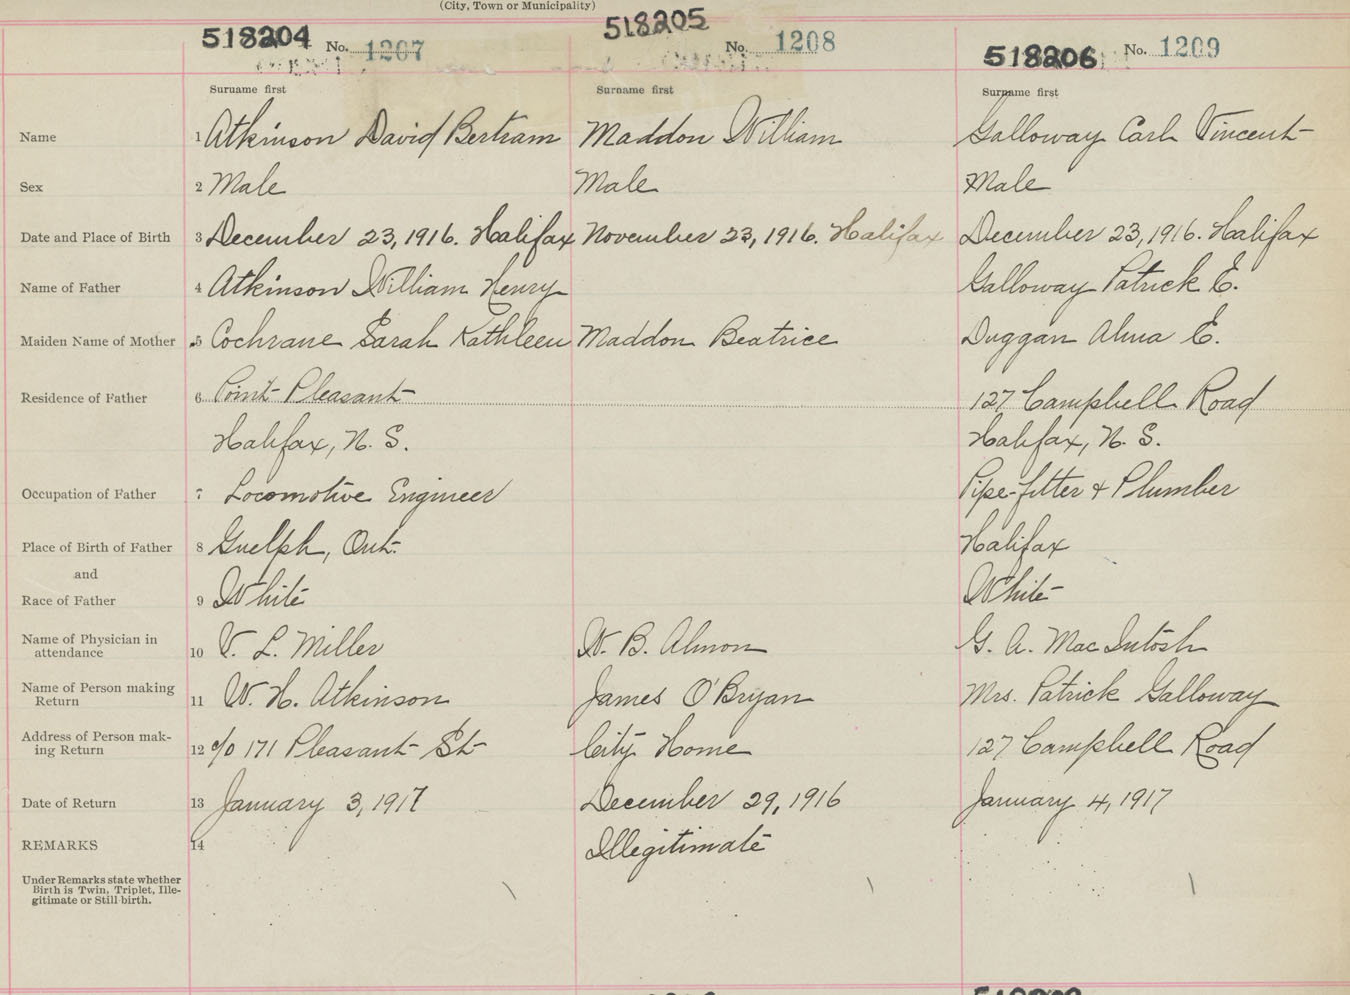 (City, Town or Municipality)
518204 No. 1207 518205 No. 1208 518206 No. 1209
Surname first Surname first Surname first
Name 1 Atkinson David Bertram Maddon William Galloway Carl Vincent
Sex 2 Male Male Male
Date and Place of Birth 3 December 23, 1916. Halifax November 23, 1916. Halifax December 23, 1916. Halifax
Name of Father 4 Atkinson William Henry Galloway Patrick E.
Maiden Name of Mother 5 Cochrane Sarah Kathleen Maddon Beatrice Duggan Alma E.
Residence of Father 6 Point Pleasant 127 Campbell Road
Halifax, N. S. Halifax, N. S.
Occupation of Father 7 Locomotive Engineer Pipe-fitter & Plumber
Place of Birth of Father 8 Guelph, Ont. Halifax
and
Race of Father 9 White White
Name of Physician in
attendance 10 V. L. Miller W. B. Almon G. A. MacIntosh
Name of Person making
Return 11 W. H. Atkinson James O'Bryan Mrs. Patrick Galloway
Address of Person mak-
ing Return 12 c/o 171 Pleasant St City Home 127 Campbell Road
Date of Return 13 January 3, 1917 December 29, 1916 January 4, 1917
REMARKS 14 Illegitimate
Under Remarks state whether
Birth is Twin, Triplet, Ille-
gitimate or Still birth.